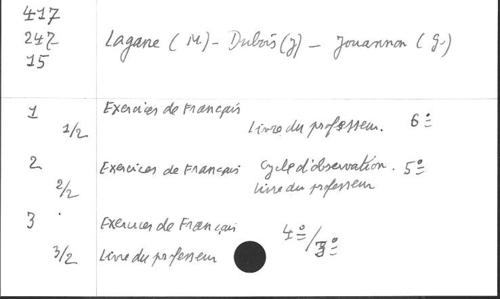 417
247 Lagane (M) - Dubois (J) - Jouannon (G.)
15
1 Exercices de Français
1/2 Livre du professeur. 6º
2 Exercices de Français Cycle d'observation. 5º
2/2 Livre du professeur
3 Exercices de Français 4º/3º
3/2 Livre du professeur